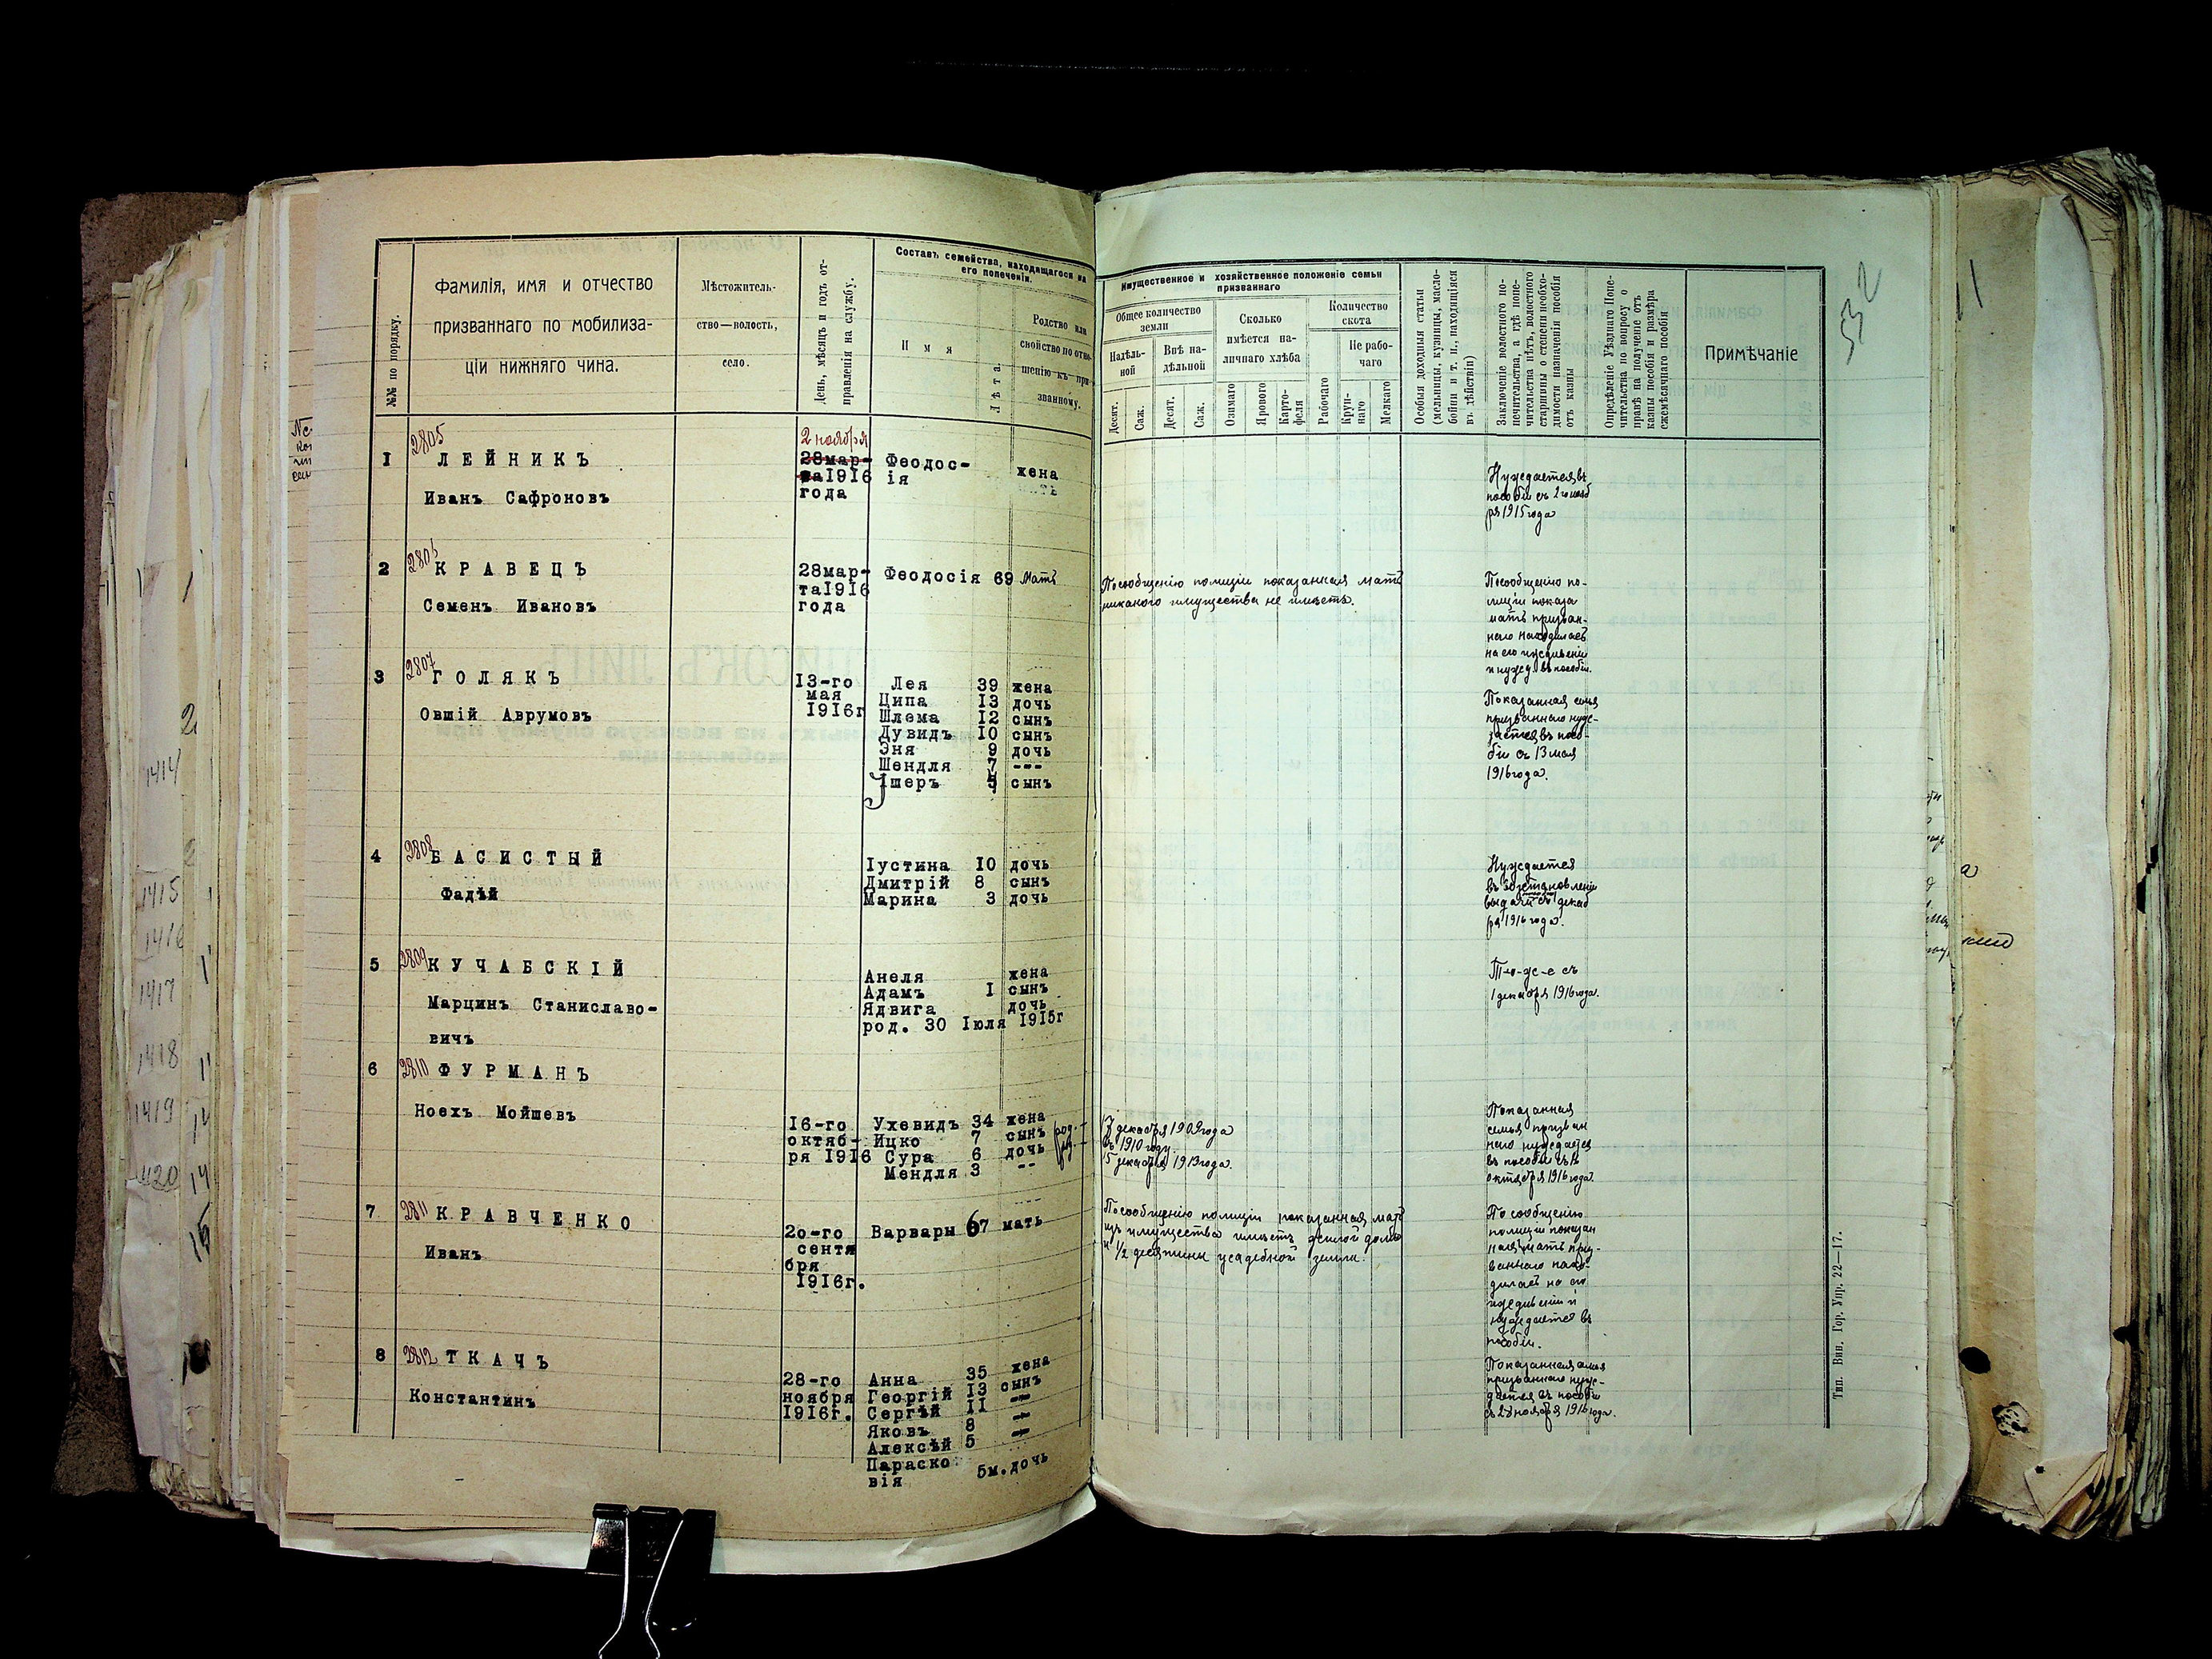 №№ по порядку.
Фамилія, имя и отчество
призваннаго по мобилиза-
ціи нижняго чина.
Мѣстожитель-
ство—волость,
село.
День, мѣсяцъ и годъ от-
правленія на службу.
Составъ семейства, находящагося на
его попеченіи.
Имя
Лѣта
Родство или
свойство по отно-
шенію къ при-
званному.
1
2805
ЛЕЙНИКЪ
Иванъ Сафроновъ
2 ноября
28мар-
та1916
года
Феодос-
ія
жена
2
КРАВЕЦЪ
Семенъ Ивановъ
28мар-
та1916
года
Феодосія 69 Мать
3
2807
ГОЛЯКЪ
Овшій Аврумовъ
13-го
мая
1916г
Лея 39 жена
Ципа 13 дочь
Шлема 12 сынъ
Дувидъ 10 сынъ
Эня 9 дочь
Шендля 7 ---
Ішеръ 5 сынъ
4
2808
БАСИСТЫЙ
Фадѣй
Іустина 10 дочь
Дмитрій 8 сынъ
Марина 3 дочь
5
2809
КУЧАБСКІЙ
Марцинъ Станиславо-
вичъ
Анеля жена
Адамъ 1 сынъ
Ядвига дочь
род. 30 Іюля 1915г
6
2810
ФУРМАНЪ
Ноехъ Мойшевъ
16-го
октяб-
ря 1916
Ухевидъ 34 жена
Ицко 7 сынъ
Сура 6 дочь
Мендля 3 --
7
2811
КРАВЧЕНКО
Иванъ
2о-го
сентя
бря
1916г.
Варвары 67 мать
8
2812
ТКАЧЪ
Константинъ
28-го
ноября
1916г.
Анна 35 жена
Георгій 13 сынъ
Сергѣй 11 --
Яковъ 8 --
Алексѣй 5 --
Параско
вія 5м. дочь
Имущественное и хозяйственное положеніе семьи
призваннаго
Общее количество
земли
Надѣль-
ной
Внѣ на-
дѣльной
Десят.
Саж.
Десят.
Саж.
Сколько
имѣется на-
личнаго хлѣба
Озимаго
Ярового
Карто-
феля
Количество
скота
Рабочаго
Не рабо-
чаго
Круп-
наго
Мелкаго
Особыя доходныя статьи
(мельницы, кузницы, масло-
бойни и т. п., находящіяся
въ дѣйствіи)
Заключеніе волостного по-
печительства, а гдѣ попе-
чительства нѣтъ, волостного
старшины о степени необхо-
димости назначенія пособія
отъ казны
Опредѣленіе Уѣзднаго Попе-
чительства по вопросу о
правѣ на полученіе отъ
казны пособія и размѣра
ежемѣсячнаго пособія
Примѣчаніе
32
Нуждается въ
пособіи съ 2 нояб
ря 1915 года
По сообщенію полиціи показанная мать
никакого имущества не имѣетъ.
По сообщенію по-
лиціи показа
мать призван-
наго находилась
на его иждивеніи
и нужд. въ пособіи.
Показанная семья
призваннаго нуж-
дается въ посо-
біи съ 13 мая
1916 года.
Нуждается
ря 1916 года.
То-же съ
1 декабря 1916 года.
декабря 1909 года
въ 1910 году
15 декабря 1913 года.
Показанная
семья призван
наго нуждается
въ пособіи съ 16
октября 1916 года.
По сообщенію полиціи показанная мать
изъ имущества имѣетъ домъ
и 1/2 десятины усадебной земли.
По сообщенію
полиціи показан
ная мать приз-
ваннаго нахо-
дилась на его
иждивеніи и
нуждается въ
пособіи.
Показанная семья
призваннаго нуж-
дается въ пособіи
съ 28 ноября 1916 года.
Тип. Вин. Гор. Упр. 22—17.
1414
1415
1416
1417
1418
1419
1420